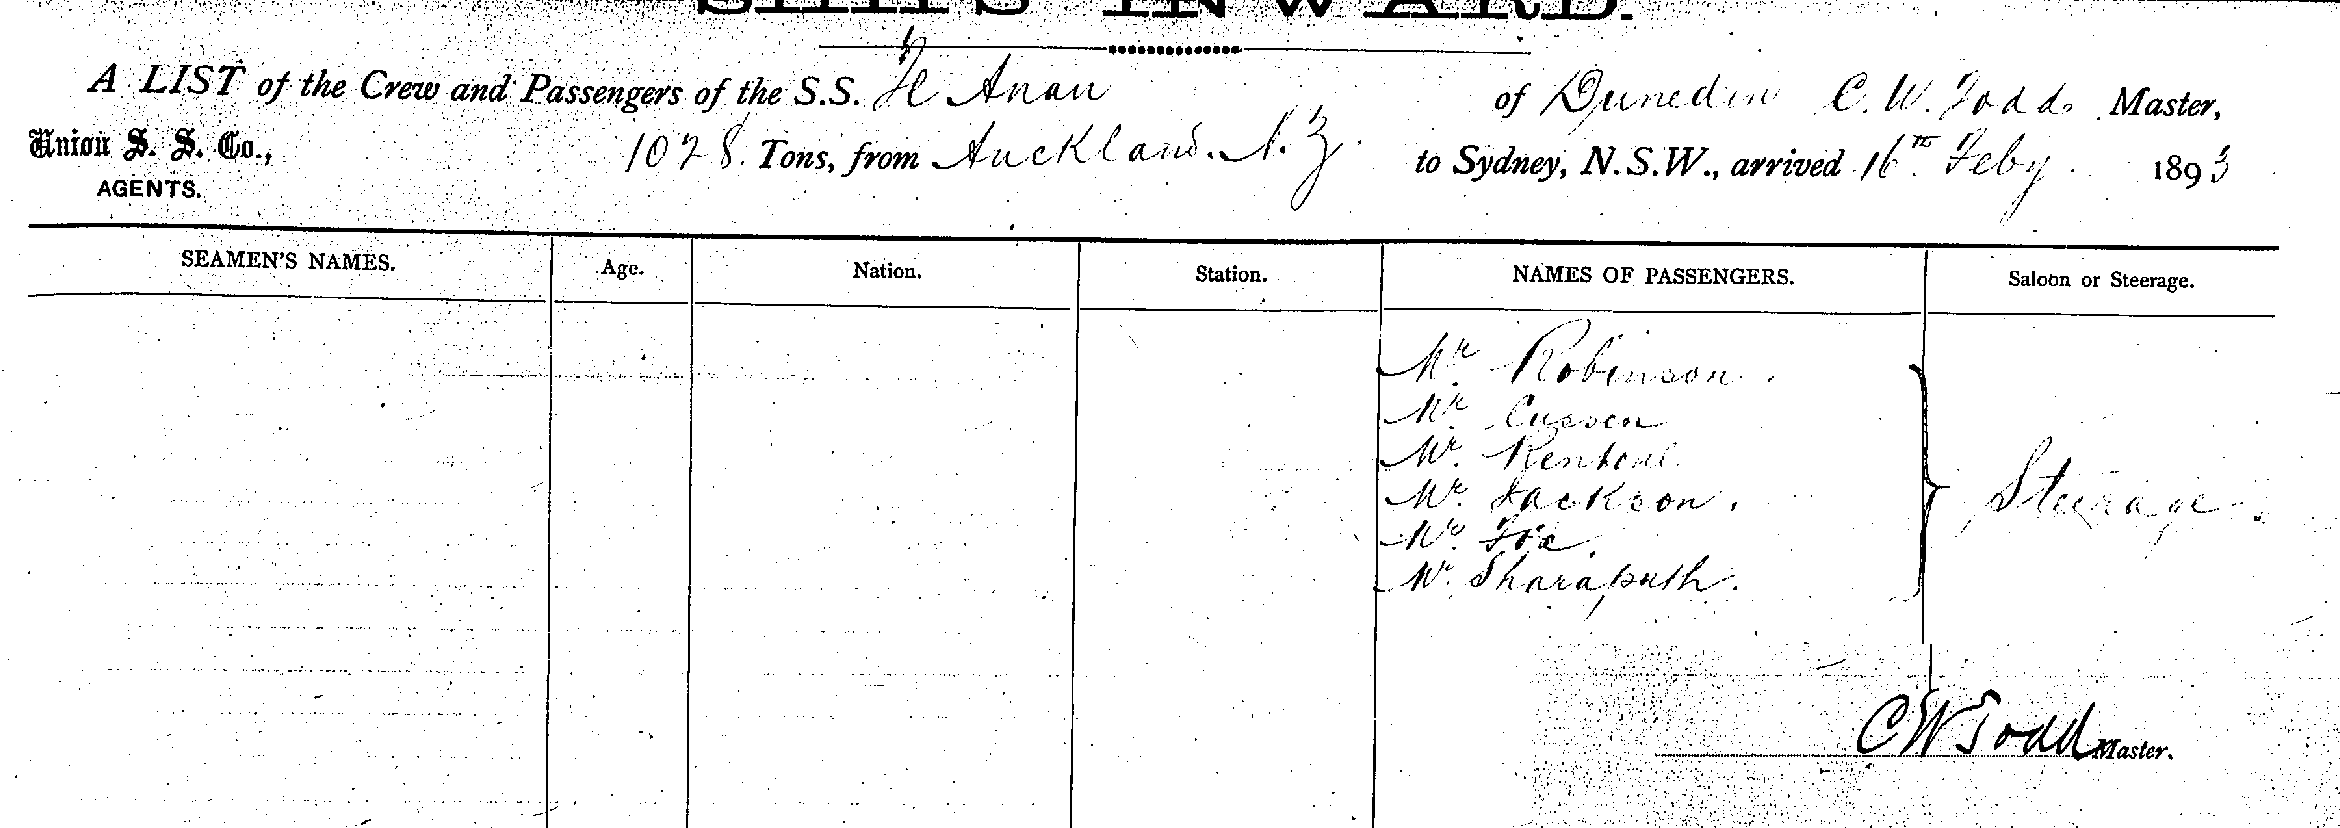 SHIPS INWARD.
A LIST of the Crew and Passengers of the S.S. Te Anau of Dunedin C. W. Todd Master,
Union S. S. Co., AGENTS. 1028 Tons, from Auckland. N.Z. to Sydney, N.S.W., arrived 16th Feby. 1893
SEAMEN'S NAMES. Age. Nation. Station. NAMES OF PASSENGERS. Saloon or Steerage.
Mr Robinson.
Mr Cussen
Mr.
Mr. Jackson. Steerage.
Mr. Fox.
Mr.
C W Todd Master.